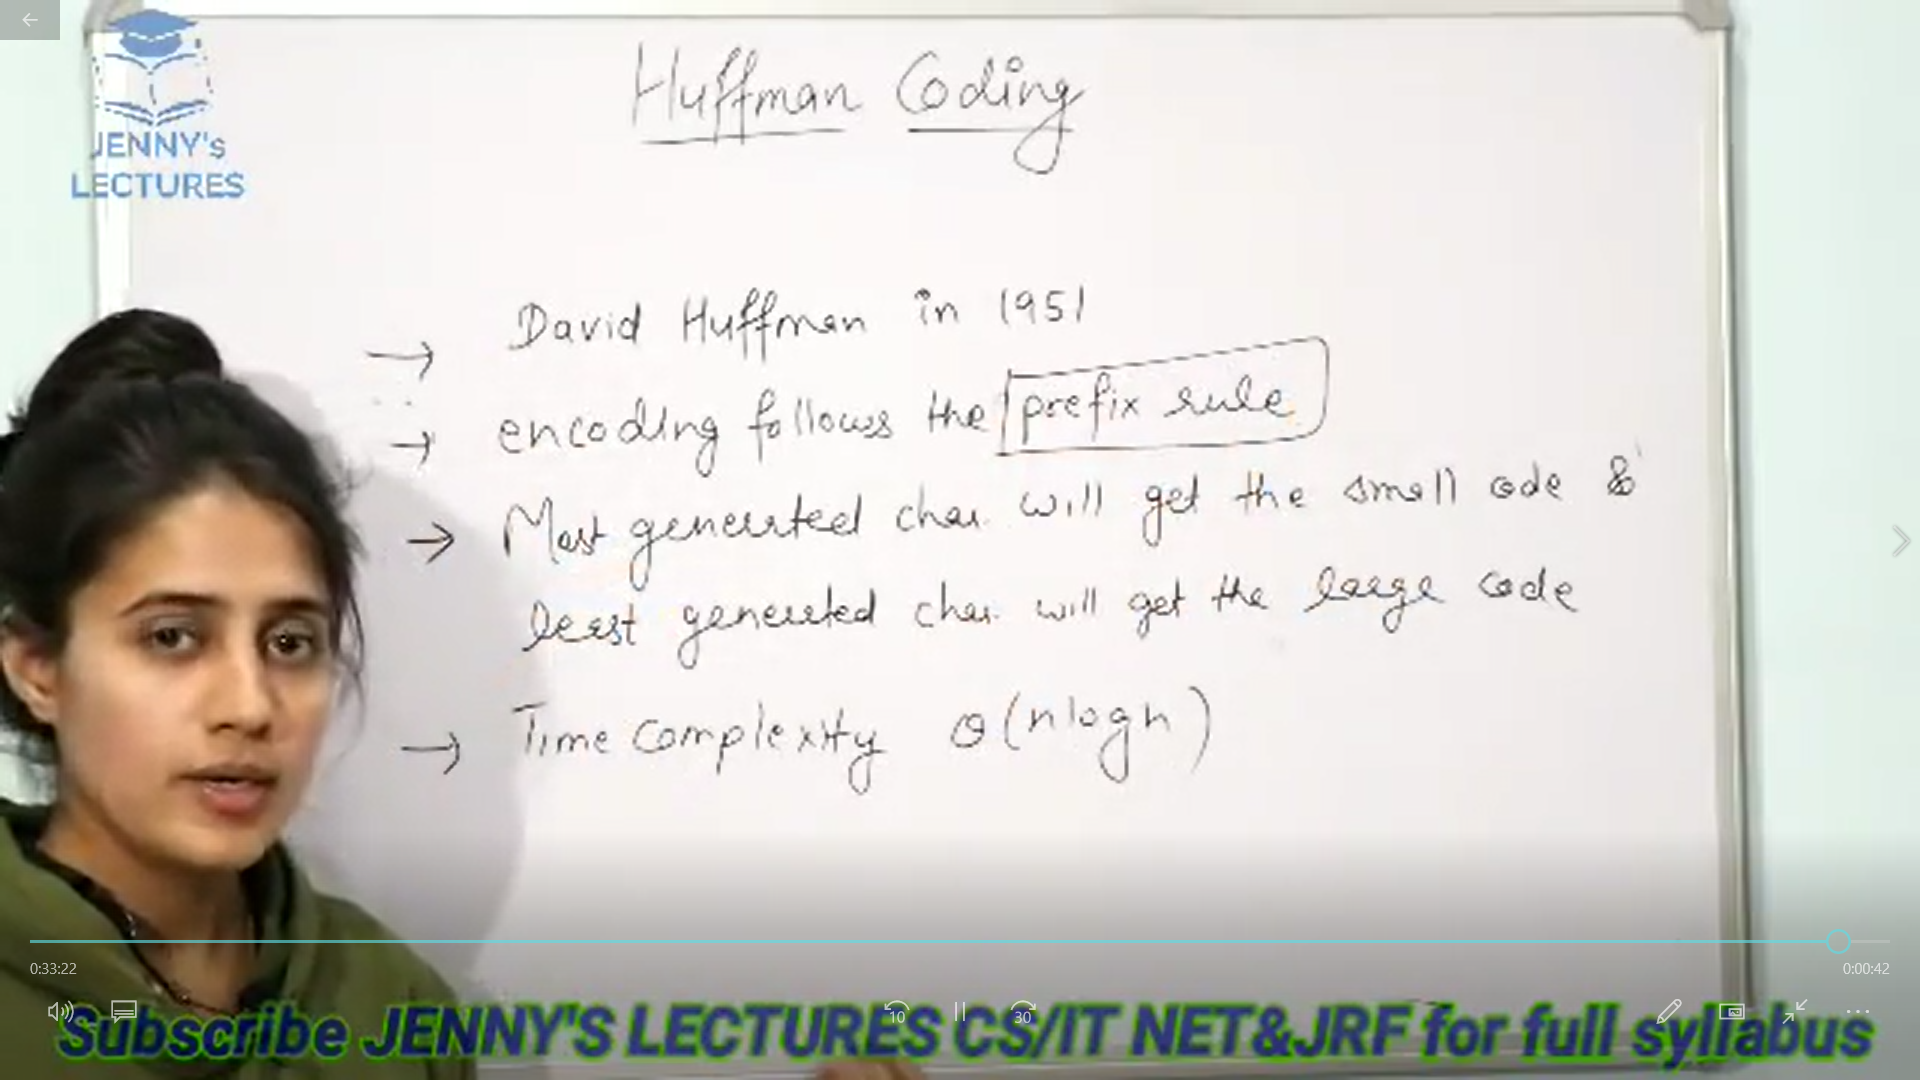 JENNY's
LECTURES
Huffman Coding
→ David Huffman in 1951
→ encoding follows the prefix rule
→ Most generated char. will get the small code &
least generated char. will get the large code
→ Time complexity θ(nlogn)
0:33:22
0:00:42
10
30
Subscribe JENNY'S LECTURES CS/IT NET&JRF for full syllabus